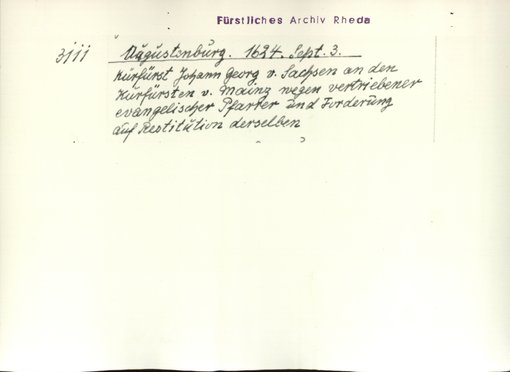 Fürstliches Archiv Rheda
3jii Augustenburg. 1624. Sept. 3.
Kurfürst Johann Georg v. Sachsen an den
Kurfürsten v. Mainz wegen vertriebener
evangelischer Pfarrer und Forderung
auf Restitution derselben